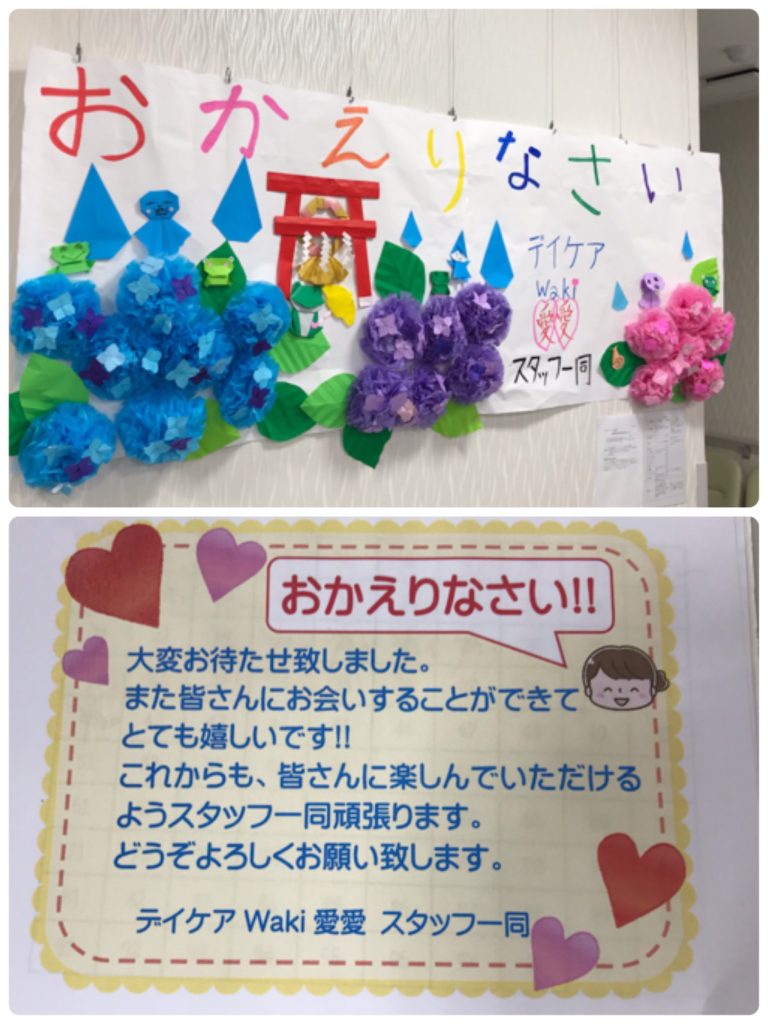 おかえりなさい
デイケア
Waki
愛愛
スタッフ一同
おかえりなさい!!
大変お待たせ致しました。
また皆さんにお会いすることができて
とても嬉しいです!!
これからも、皆さんに楽しんでいただける
ようスタッフ一同頑張ります。
どうぞよろしくお願い致します。
デイケア Waki 愛愛 スタッフ一同